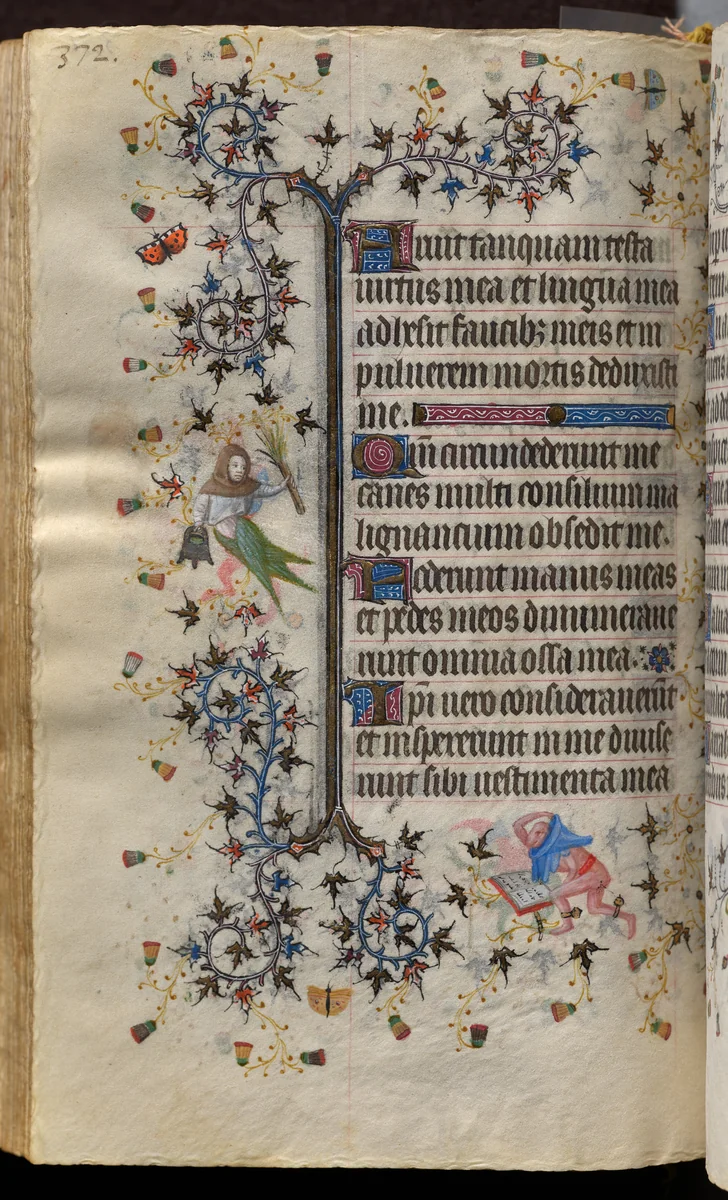 372.
Aruit tanquam testa
uirtus mea et lingua mea
adhesit faucibȝ meis et in
puluerem mortis deduxisti
me.
Qm̄ circundederunt me
canes multi consilium ma
lignancium obsedit me.
Federunt manus meas
et pedes meos dinumeraue
runt omnia ossa mea.
Ip̄i uero considerauerūt
et inspexerunt in me diuise
runt sibi uestimenta mea